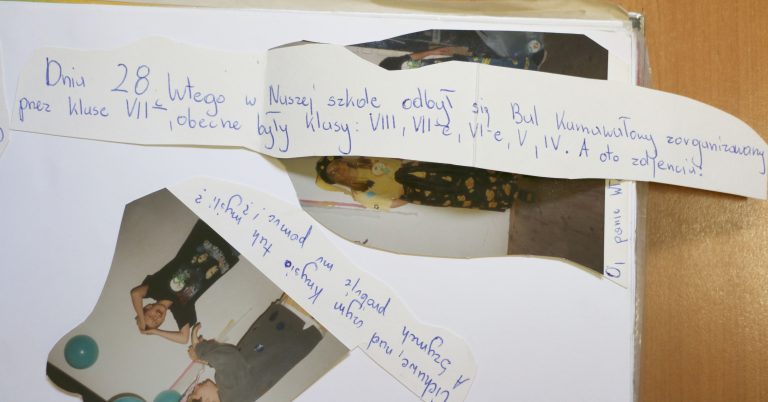 Dniu 28 lutego w Naszej szkole odbył się Bal Karnawałowy zorganizowany
przez klasę VII c, obecne były klasy: VIII, VII-e, VI-e, V, IV. A oto zdjęcia!
Ciekawe, nad czym Krzysio tak myśli?
A Szymek próbuje mu pomóc!?
O, panie